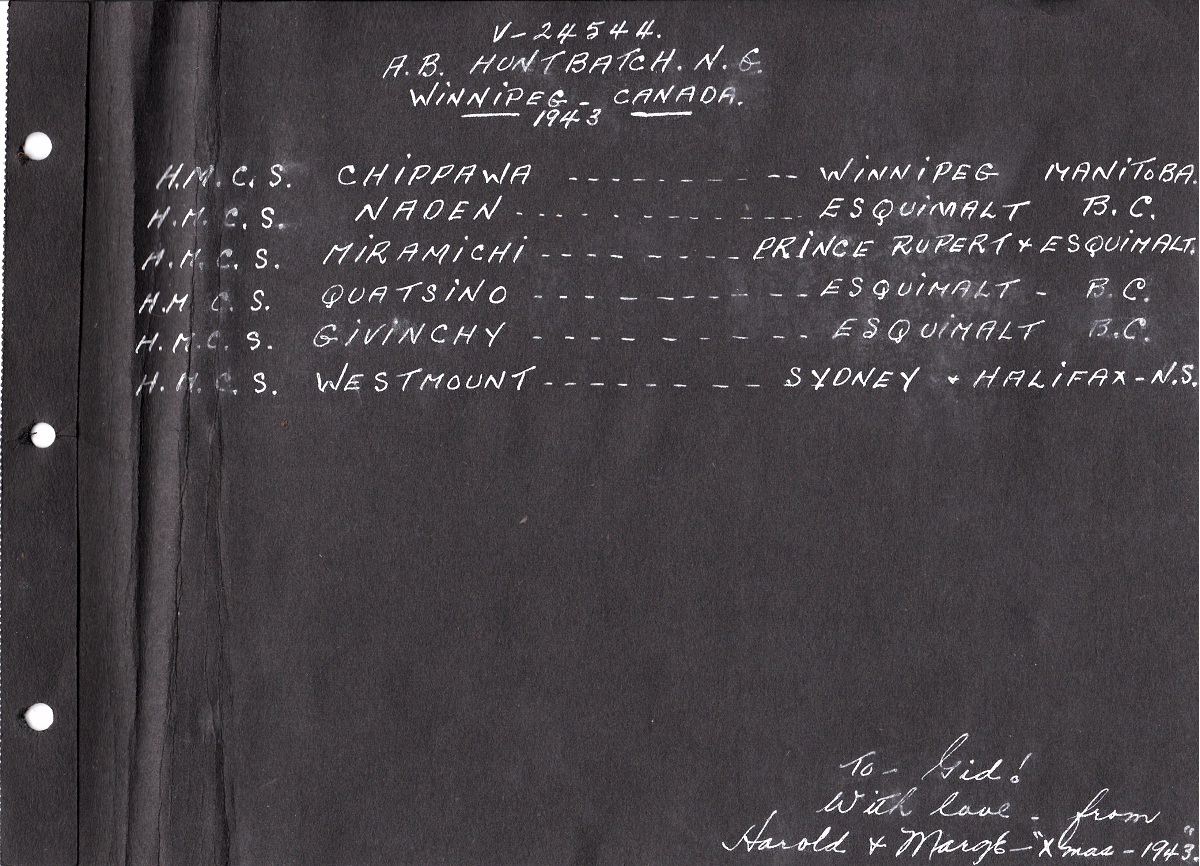 V-24544.
A.B. HUNTBATCH. N. G.
WINNIPEG - CANADA.
1943
H.M.C.S. CHIPPAWA ---------- WINNIPEG MANITOBA.
H.M.C.S. NADEN ------------- ESQUIMALT B.C.
H.M.C.S. MIRAMICHI --------- PRINCE RUPERT & ESQUIMALT.
H.M.C.S. QUATSINO ---------- ESQUIMALT - B.C.
H.M.C.S. GIVINCHY ---------- ESQUIMALT B.C.
H.M.C.S. WESTMOUNT --------- SYDNEY & HALIFAX - N.S.
To - Gid!
With love - from
Harold & Marge - "Xmas - 1943"